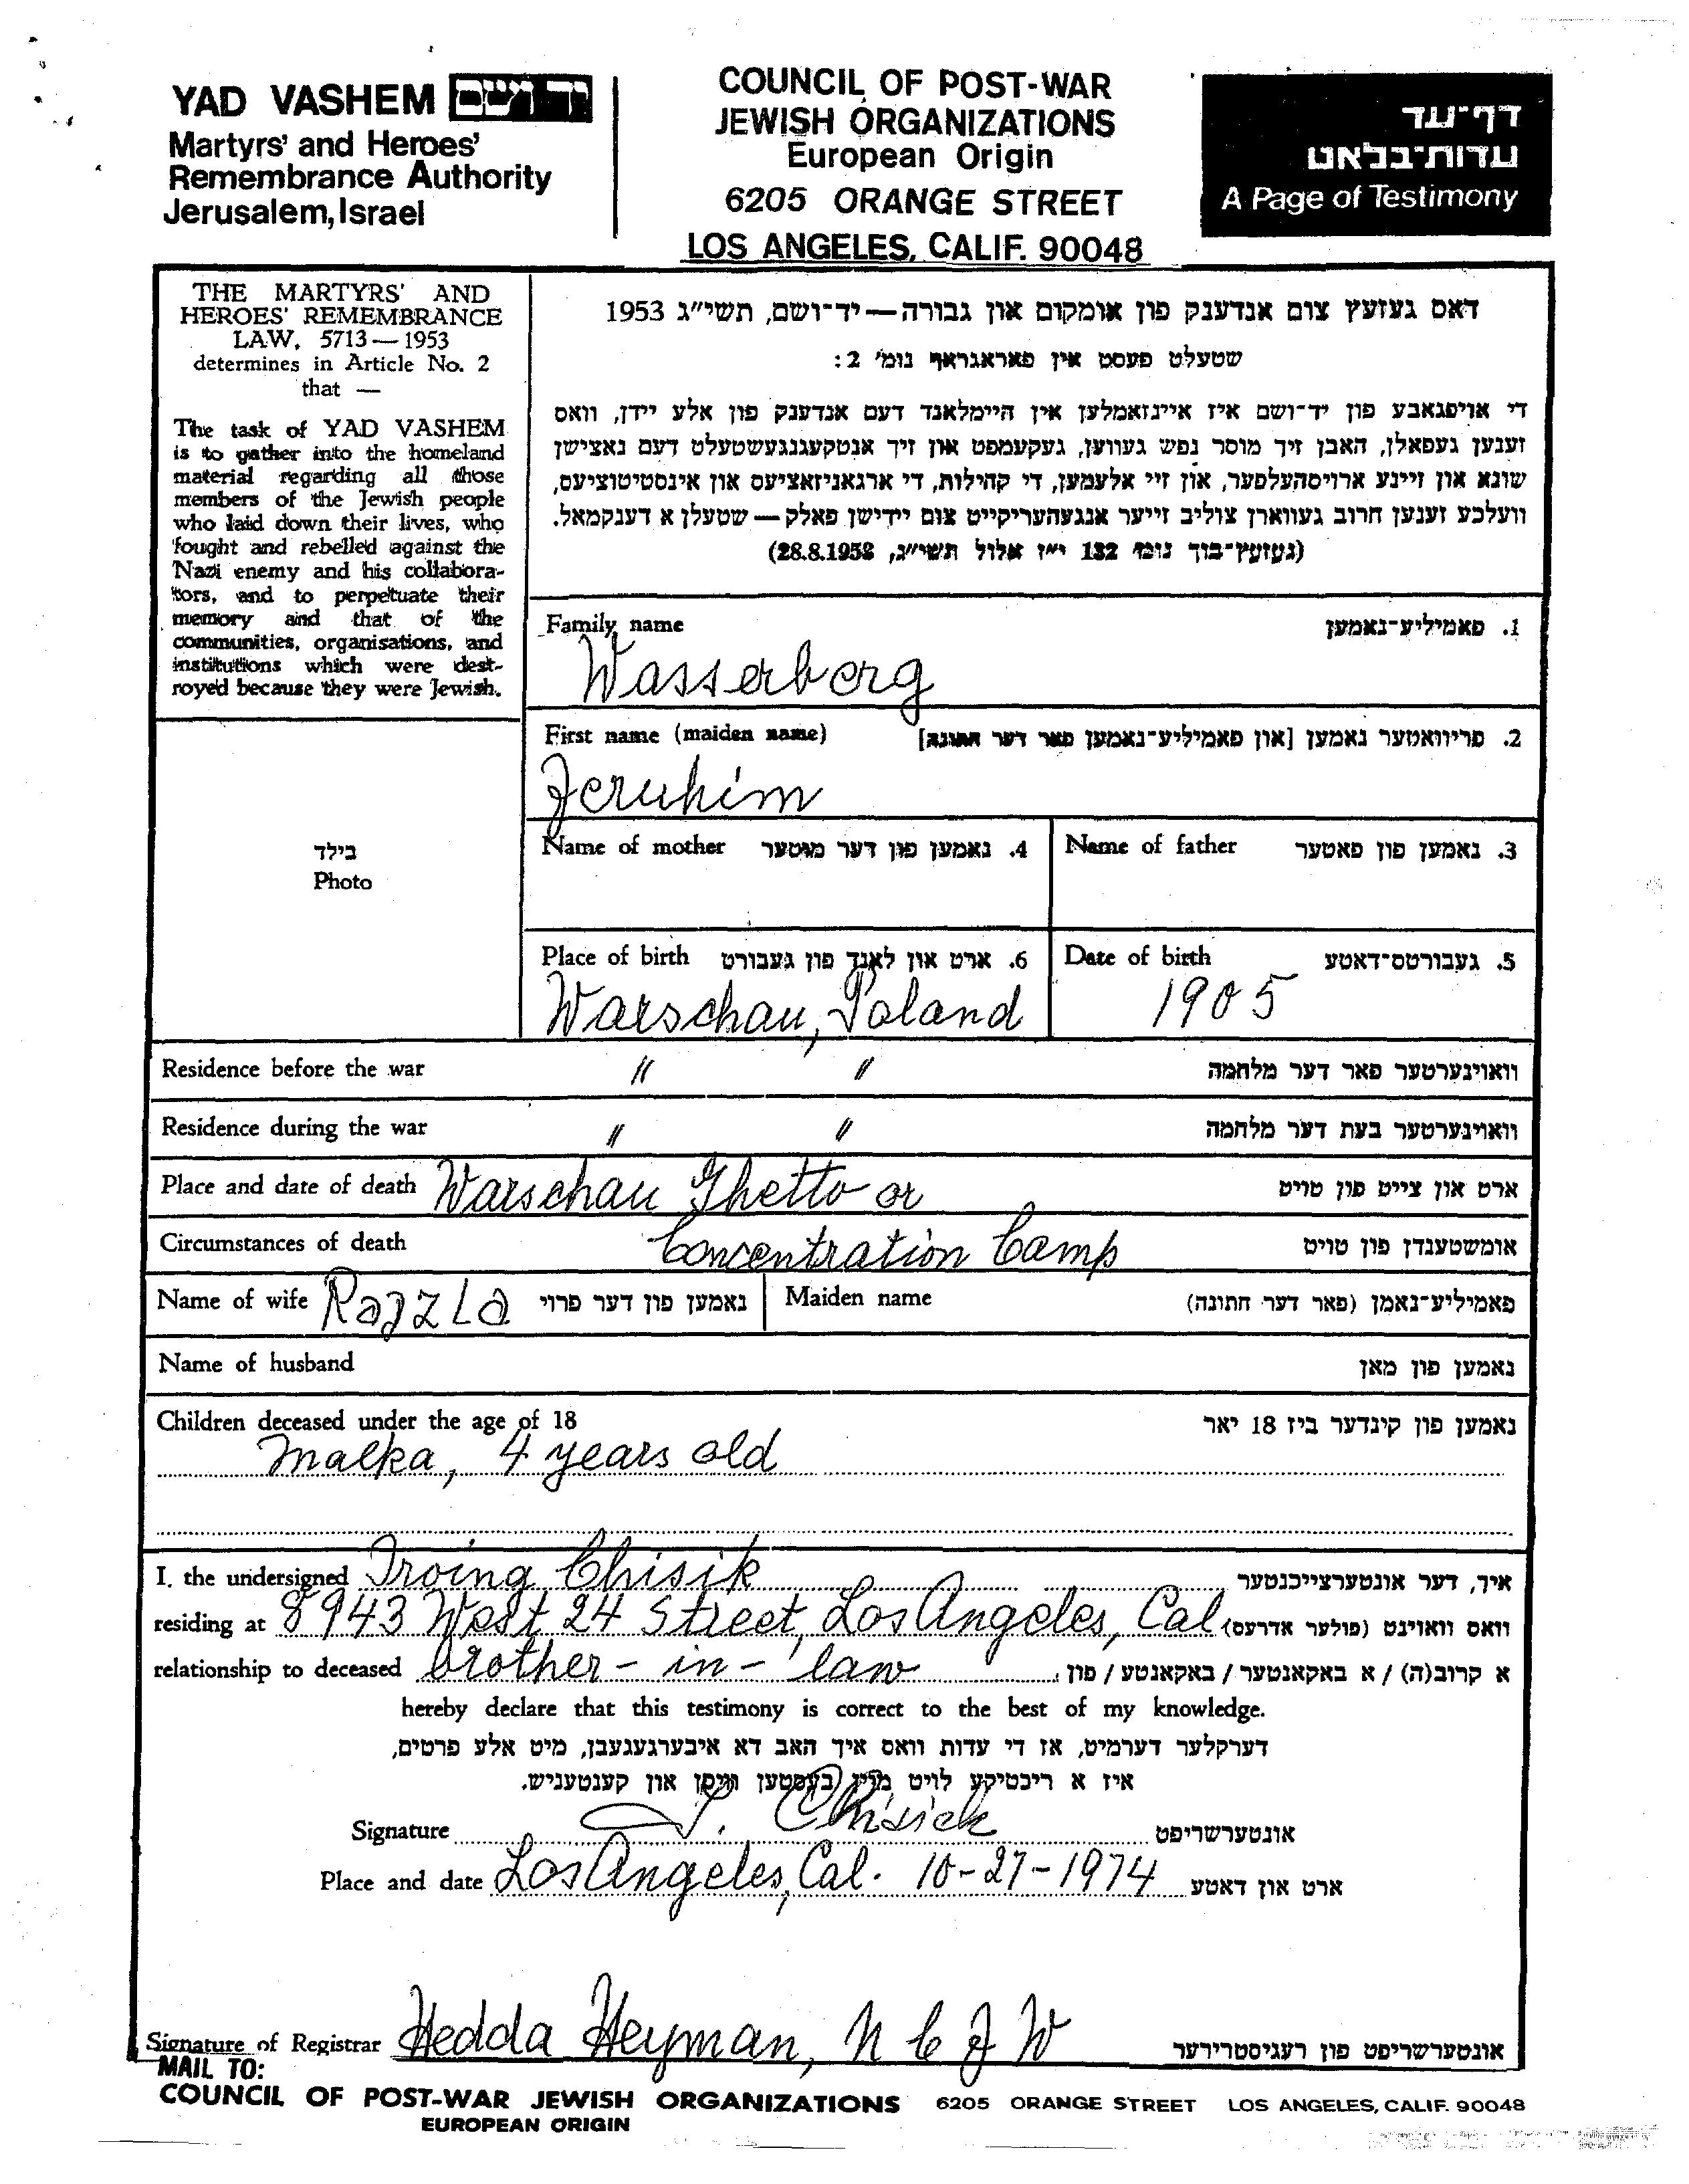 YAD VASHEM יד ושם
Martyrs' and Heroes'
Remembrance Authority
Jerusalem, Israel
COUNCIL OF POST-WAR
JEWISH ORGANIZATIONS
European Origin
6205 ORANGE STREET
LOS ANGELES, CALIF. 90048
דף-עד
עדות-בלאט
A Page of Testimony
THE MARTYRS' AND
HEROES' REMEMBRANCE
LAW, 5713—1953
determines in Article No. 2
that —
The task of YAD VASHEM
is to gather into the homeland
material regarding all those
members of the Jewish people
who laid down their lives, who
fought and rebelled against the
Nazi enemy and his collabora-
tors, and to perpetuate their
memory and that of the
communities, organisations, and
institutions which were dest-
royed because they were Jewish.
דאס געזעץ צום אנדענק פון אומקום און גבורה — יד-ושם, תשי"ג 1953
שטעלט פעסט אין פאראגראף נומ' 2:
די אויפגאבע פון יד-ושם איז איינזאמלען אין היימלאנד דעם אנדענק פון אלע יידן, וואס
זענען געפאלן, האבן זיך מוסר נפש געווען, געקעמפט און זיך אנטקעגנגעשטעלט דעם נאצישן
שונא און זיינע ארויסהעלפער, און זיי אלעמען, די קהילות, די ארגאניזאציעס און אינסטיטוציעס,
וועלכע זענען חרוב געווארן צוליב זייער אנגעהעריקייט צום יידישן פאלק — שטעלן א דענקמאל.
(געזעץ-בוך נומ' 132 י"ז אלול תשי"ג, 28.8.1953)
Family name 1. פאמיליע-נאמען
Wasserberg
First name (maiden name) 2. פריוואטער נאמען [און פאמיליע-נאמען פאר דער חתונה]
Jeruhim
Name of mother 4. נאמען פון דער מוטער
Name of father 3. נאמען פון פאטער
Place of birth 6. ארט און לאנד פון געבורט
Warschau, Poland
Date of birth 5. געבורטס-דאטע
1905
בילד
Photo
Residence before the war " " וואוינערטער פאר דער מלחמה
Residence during the war " " וואוינערטער בעת דער מלחמה
Place and date of death Warschau Ghetto or ארט און צייט פון טויט
Circumstances of death Concentration Camp אומשטענדן פון טויט
Name of wife Rajzla נאמען פון דער פרוי Maiden name פאמיליע-נאמן (פאר דער חתונה)
Name of husband נאמען פון מאן
Children deceased under the age of 18 נאמען פון קינדער ביז 18 יאר
Malka, 4 years old
I, the undersigned Irving Chisik איך, דער אונטערצייכנטער
residing at 8943 West 24 Street, Los Angeles, Cal וואס וואוינט (פולער אדרעס)
relationship to deceased brother-in-law א קרוב(ה) / א באקאנטער / באקאנטע / פון
hereby declare that this testimony is correct to the best of my knowledge.
דערקלער דערמיט, אז די עדות וואס איך האב דא איבערגעגעבן, מיט אלע פרטים,
איז א ריכטיקע לויט מיין בעסטען וויסן און קענטעניש.
Signature I. Chisick אונטערשריפט
Place and date Los Angeles, Cal. 10-27-1974 ארט און דאטע
Signature of Registrar Hedda Heyman, N C J W אונטערשריפט פון רעגיסטרירער
MAIL TO:
COUNCIL OF POST-WAR JEWISH ORGANIZATIONS 6205 ORANGE STREET LOS ANGELES, CALIF. 90048
EUROPEAN ORIGIN